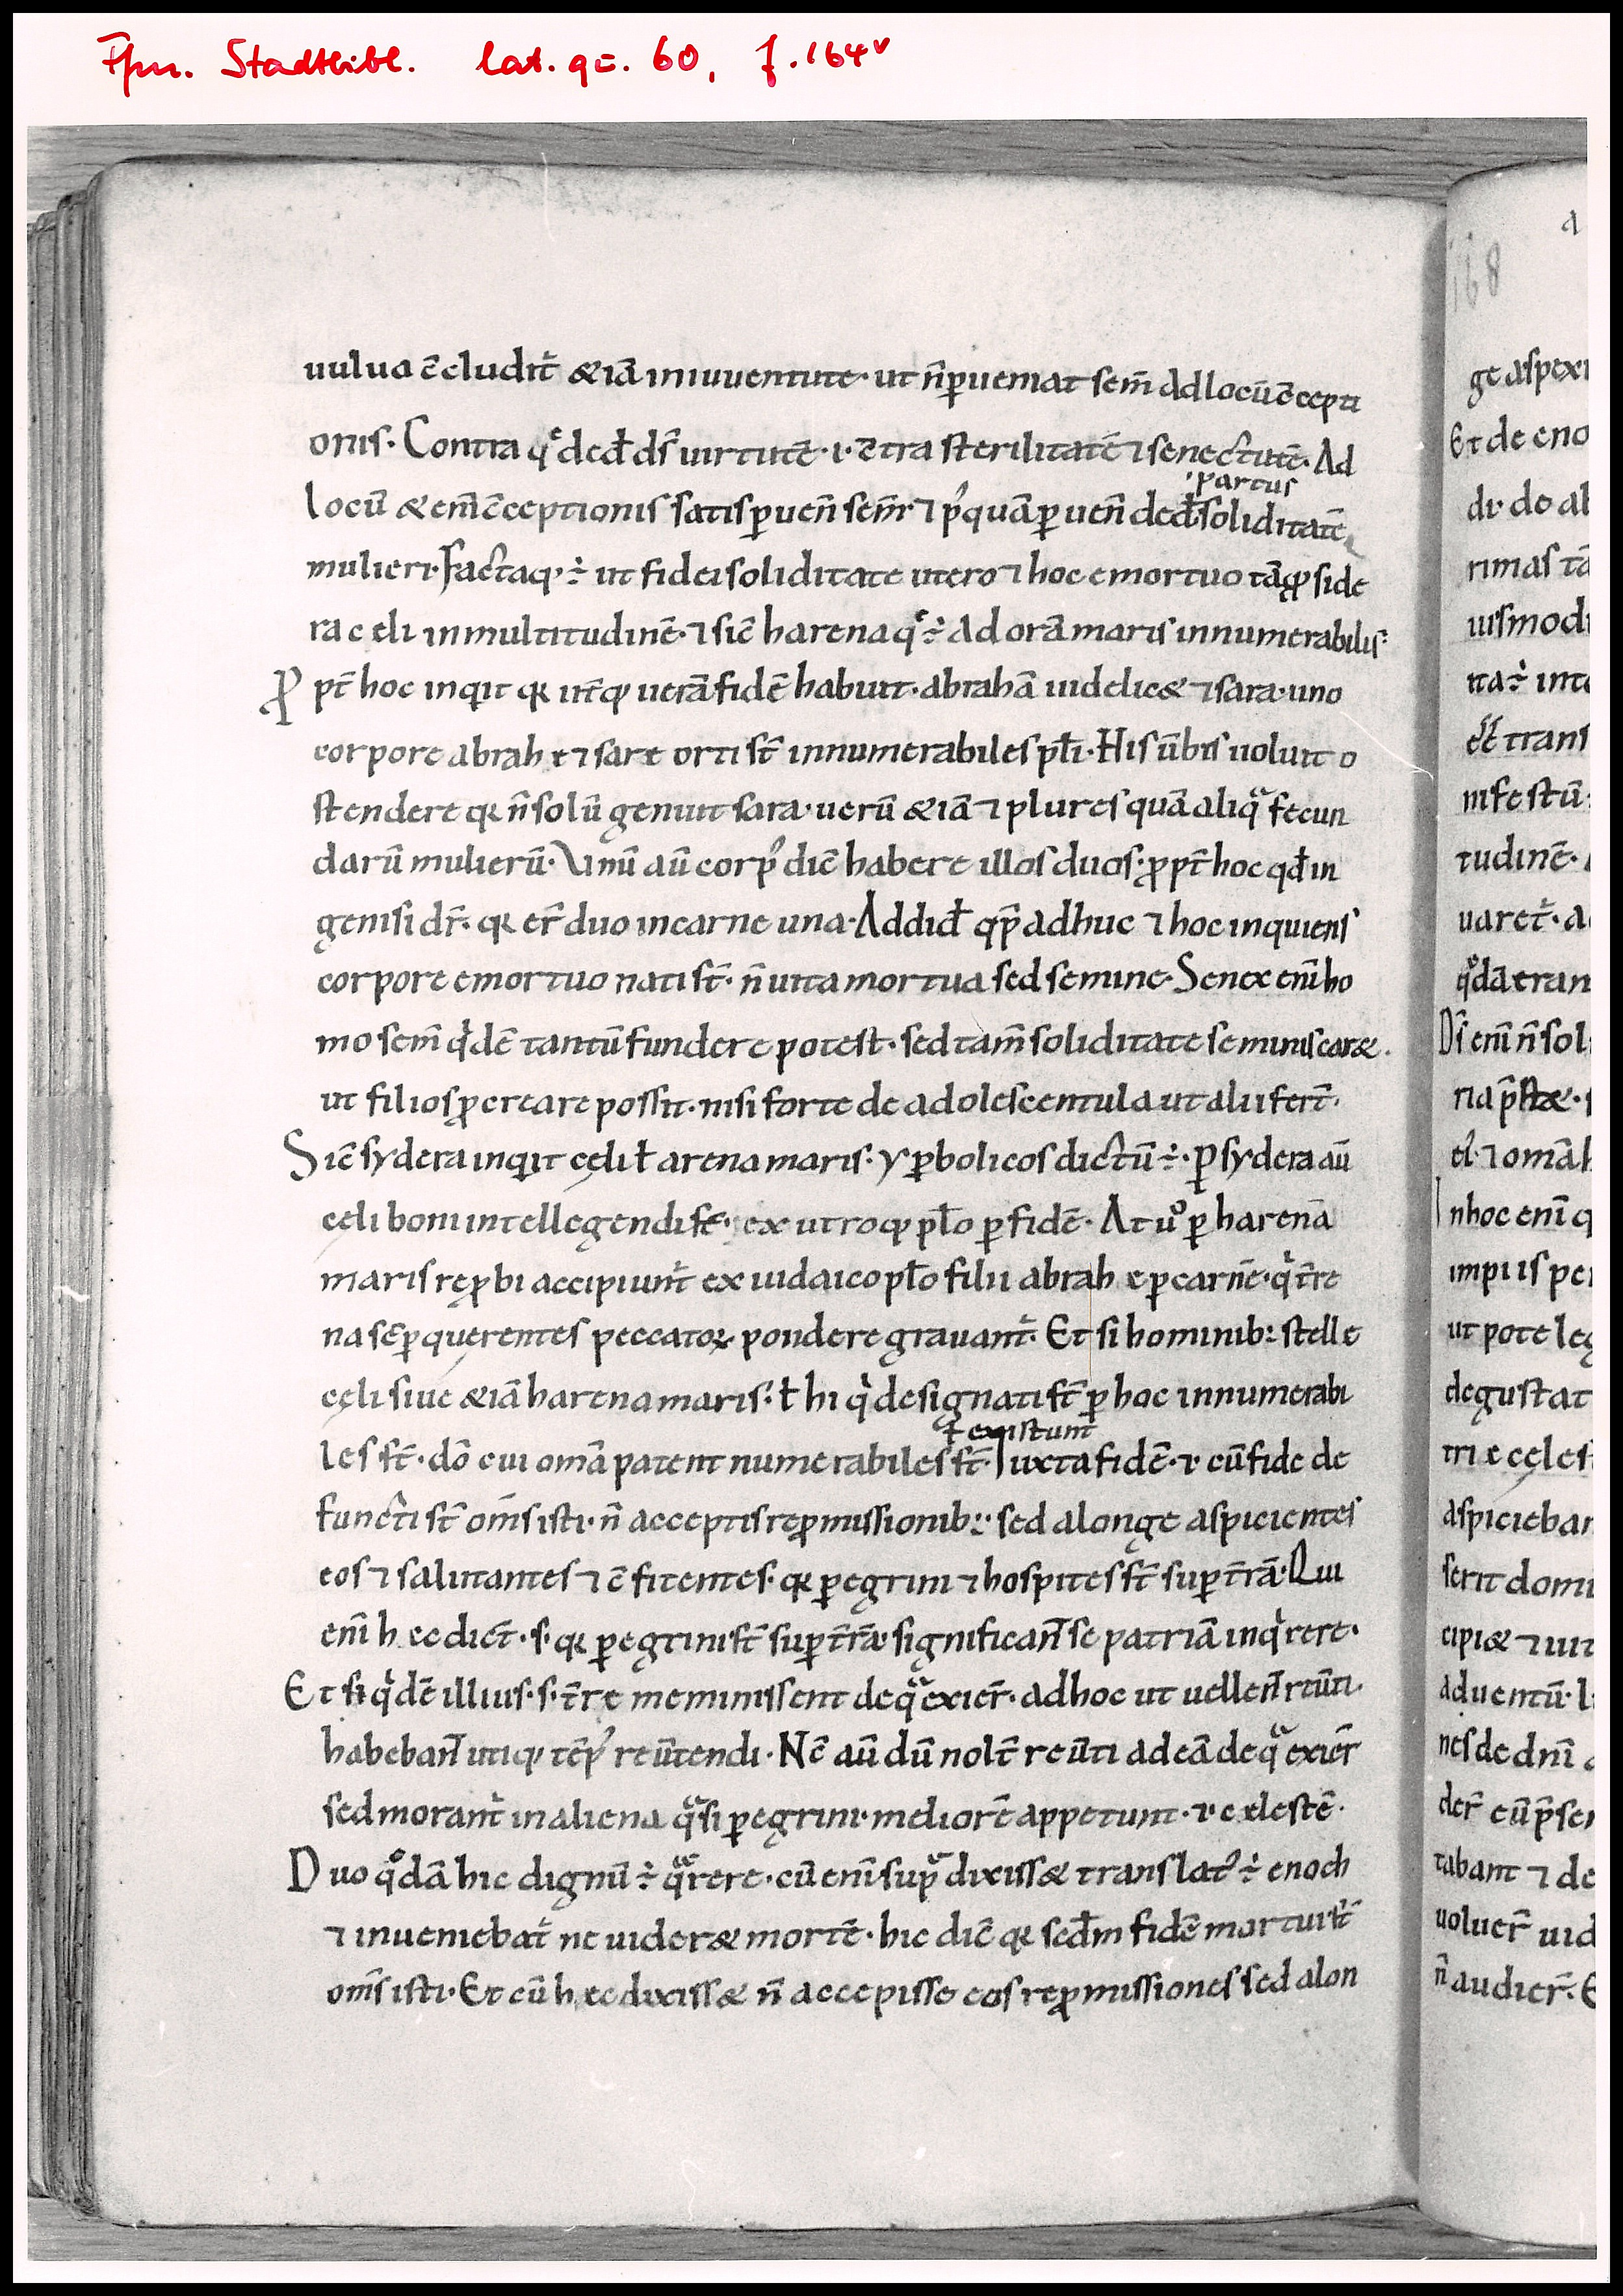 Ffm. Stadtbibl. lat. qu. 60, f. 164v
uulua c̄cludit᷑ &iā iniuuentute· ut n̄ ꝑueniat sem̄ ad locū c̄cepti
onis· Contra qͤ dedđ ds̄ uirtutē ·i· c̄tra sterilitatē ⁊ senectutē· Ad
partus
locū &eni c̄ceptionis satis ꝑuen̄ sem̄ ⁊ pꝰquā ꝑuen̄ dedđ soliditatē
mulieri· Factaq; ÷ ut fidei soliditate utero ⁊ hoc emortuo tāꝙ side
ra celi inmultitudinē· ⁊ sic̄ harena qͤ ÷ ad orā maris innumerabilis·
Ꝓ pt̄ hoc inquit qꝛ utq; uerā fidē habuit· abrahā uidelic& ⁊ sara· uno
corpore abrahę ⁊ sarę orti st̄ innumerabiles pl̄i· His ūbis uoluit o
stendere qꝛ n̄ solū genuit sara· uerū &iā ⁊ plures quā aliqͣ fecun
darū mulierū· Unū aū corpꝰ dic̄ habere illos duos· ꝓpt̄ hoc qđ in
genisi dr̄· qꝛ er̄ duo incarne una· Addid̄ qp̄ adhuc ⁊ hoc inquiens
corpore emortuo nati st̄· n̄ uita mortua sed semine· Senex eni ho
mo sem̄ qͥdē tantū fundere potest· sed tam̄ soliditate seminis car&·
ut filios ꝓcreare possit· nisi forte de adolescentula ut alii fert̄·
Sic̄ sydera inquit cęli ł arena maris· yꝑbolicos dictū ÷· ꝑ sydera aū
cęli boni intellegendi st̄· ex utroq; pl̄o ꝑ fidē· At uͦ ꝑ harenā
maris reꝓbi accipiunt᷑ ex iudaico pl̄o filii abrahę ꝑ carnē· qͥ t̄re
na sēꝑ quęrentes peccatoꝝ pondere grauant᷑· Et si hominib; stellę
cęli siue &iā harena maris· ł hi qͥ designati st̄ ꝑ hoc innumerabi
ł existunt
les st̄· dō cui omā patent numerabiles st̄· Iuxta fidē ·i· cū fide de
functi st̄ om̄s isti· n̄ acceptis reꝓmissionib;· sed alonge aspicientes
eos ⁊ salutantes ⁊ c̄fitentes· qꝛ ꝑegrini ⁊ hospites st̄ suꝑ t̄rā· Qui
eni hęc dict̄ ·s· qꝛ ꝑegrini st̄ suꝑ t̄rā· significant̄ se patriā inqͥrere·
Et si qͥdē illius ·s· t̄rę meminissent de qͣ exier̄· adhoc ut uellent̄ reūti
habebant̄ utiq; tēpꝰ reūtendi· Nc̄ aū dū nolt̄ reūti ad eā de qͣ exier̄
sed morant᷑ in aliena qͣsi ꝑegrini· meliorē appetunt ·i· cęlestē·
Duo qͦdā hic dignū ÷ qͣrere· cū eni supͣ dixiss& translatꝰ ÷ enoch
⁊ inueniebat᷑ ne uider& mortē· hic dic̄ qꝛ sed̄m fidē mortui st̄
om̄s isti· Et cū hęc dixiss& n̄ accepisse eos reꝓmissiones sed alon
168
ge aspexi
Et de eno
di· do ab
rimas tā
iusmodi
ita ÷ inte
trans
infestū
tudinē·
uaret᷑· a
qͦdā eran
Ds̄ eni n̄ soli
ria p̄st&·
el· ⁊ omā h
Inhoc eni q
impiis pe
ut pote leg
degustat
trie celes
aspicieban
serit domi
cipi& ⁊ uit
aduentū·
nes de dn̄i
der̄ eū p̄sen
tabant ⁊ de
uoluer̄ uid
n̄ audier̄· E